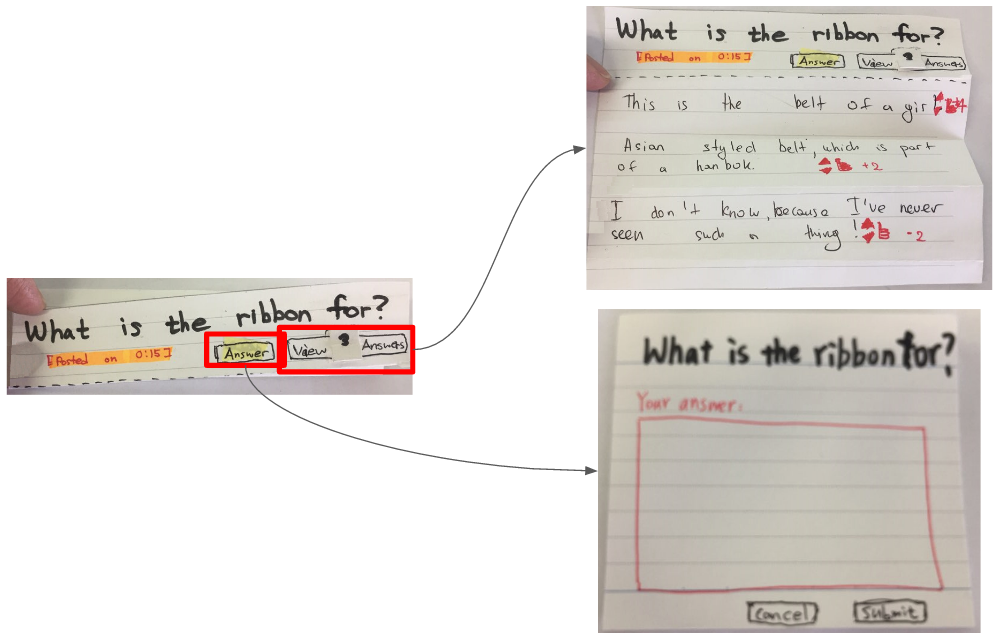 What is the ribbon for?
[Posted on 0:15]
Answer
View 3 Answers
What is the ribbon for?
[Posted on 0:15]
Answer
View 3 Answers
This is the belt of a girl
Asian styled belt, which is part
of a hanbok.
+2
I don't know, because I've never
seen such a thing!
-2
What is the ribbon for?
Your answer:
Cancel
Submit